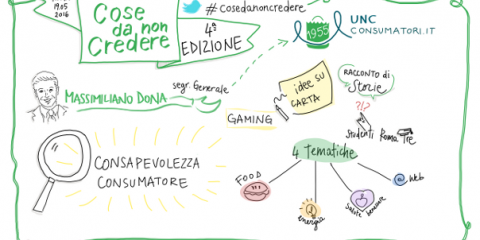 19.05
2016
Cose
da non
Credere
#cosedanoncredere
4ª
EDIZIONE
1955
UNC
CONSUMATORI.IT
segr. Generale
MASSIMILIANO DONA
GAMING
idee su
CARTA
RACCONTO di
Storie
?!?
Studenti Roma Tre
CONSAPEVOLEZZA
CONSUMATORE
4 Tematiche
FOOD
energia
Salute benessere
Web